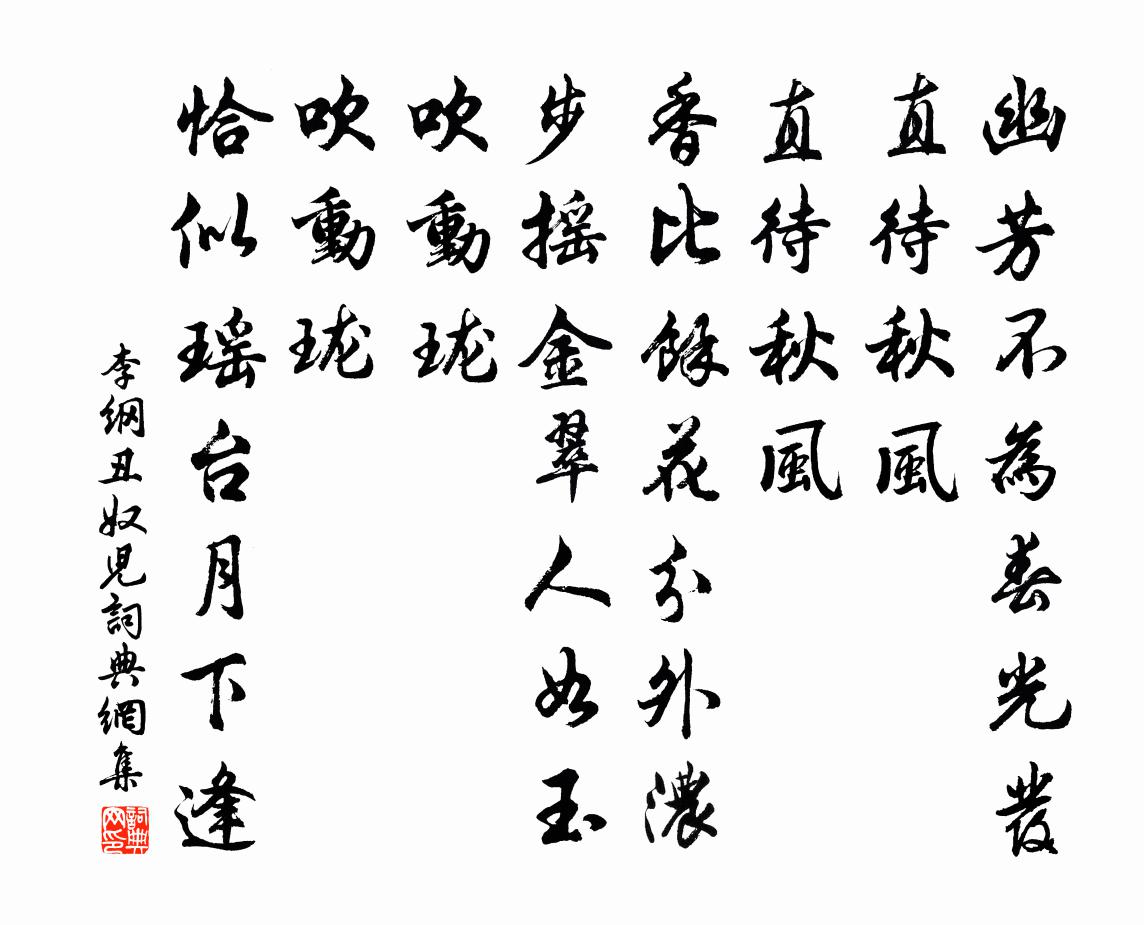 幽芳不為春光發
直待秋風
直待秋風
香比餘花分外濃
步摇金翠人如玉
吹動珑
吹動珑
恰似瑶台月下逢
李纲丑奴児詞典網集
詞典
网印